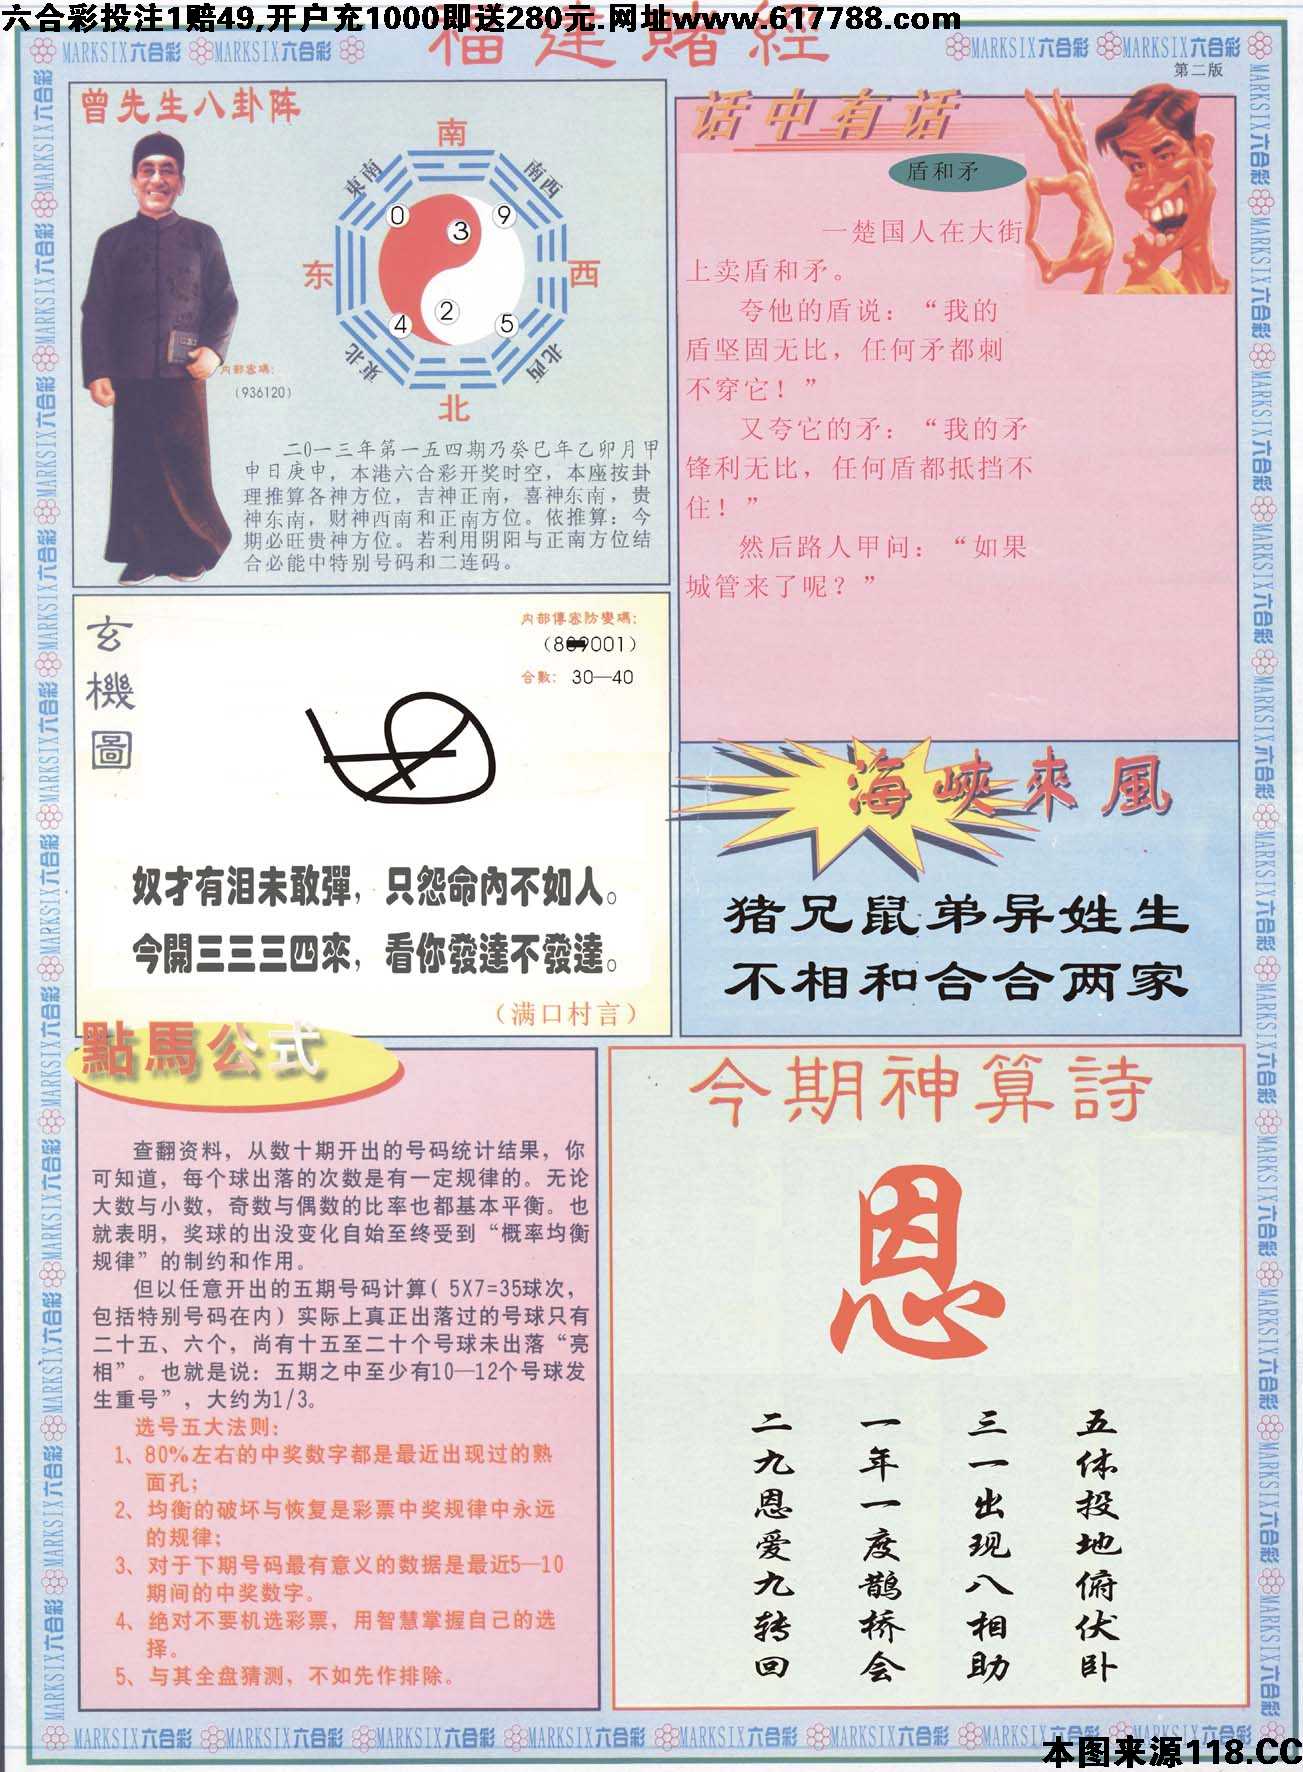 六合彩投注1赔49,开户充1000即送280元.网址www.617788.com
福建賭經
MARKSIX六合彩 MARKSIX六合彩
MARKSIX六合彩 MARKSIX六合彩
第二版
曾先生八卦阵
南
東南
南西
0
3
9
东
西
4
2
5
東北
北西
北
内部密碼:
(936120)
二0一三年第一五四期乃癸巳年乙卯月甲
申日庚申，本港六合彩开奖时空，本座按卦
理推算各神方位，吉神正南，喜神东南，贵
神东南，财神西南和正南方位。依推算：今
期必旺贵神方位。若利用阴阳与正南方位结
合必能中特别号码和二连码。
话中有话
盾和矛
一楚国人在大街
上卖盾和矛。
夸他的盾说：“我的
盾坚固无比，任何矛都刺
不穿它！”
又夸它的矛：“我的矛
锋利无比，任何盾都抵挡不
住！”
然后路人甲问：“如果
城管来了呢？”
玄機圖
内部傳密防變碼:
001)
合數: 30—40
奴才有泪未敢彈，只怨命內不如人。
今開三三三四來，看你發達不發達。
(满口村言)
海峽來風
猪兄鼠弟异姓生
不相和合合两家
點馬公式
查翻资料，从数十期开出的号码统计结果，你
可知道，每个球出落的次数是有一定规律的。无论
大数与小数，奇数与偶数的比率也都基本平衡。也
就表明，奖球的出没变化自始至终受到“概率均衡
规律”的制约和作用。
但以任意开出的五期号码计算( 5X7=35球次，
包括特别号码在内) 实际上真正出落过的号球只有
二十五、六个，尚有十五至二十个号球未出落“亮
相”。也就是说：五期之中至少有10—12个号球发
生重号”，大约为1/3。
选号五大法则:
1、80%左右的中奖数字都是最近出现过的熟
面孔;
2、均衡的破坏与恢复是彩票中奖规律中永远
的规律;
3、对于下期号码最有意义的数据是最近5—10
期间的中奖数字。
4、绝对不要机选彩票，用智慧掌握自己的选
择。
5、与其全盘猜测，不如先作排除。
今期神算詩
恩
五体投地俯伏卧
三一出现八相助
一年一度鹊桥会
二九恩爱九转回
MARKSIX六合彩 MARKSIX六合彩 MARKSIX六合彩 MARKSIX六合彩 MARKSIX六合彩 MARKSIX六合彩 MARKSIX六合彩
本图来源118.CC